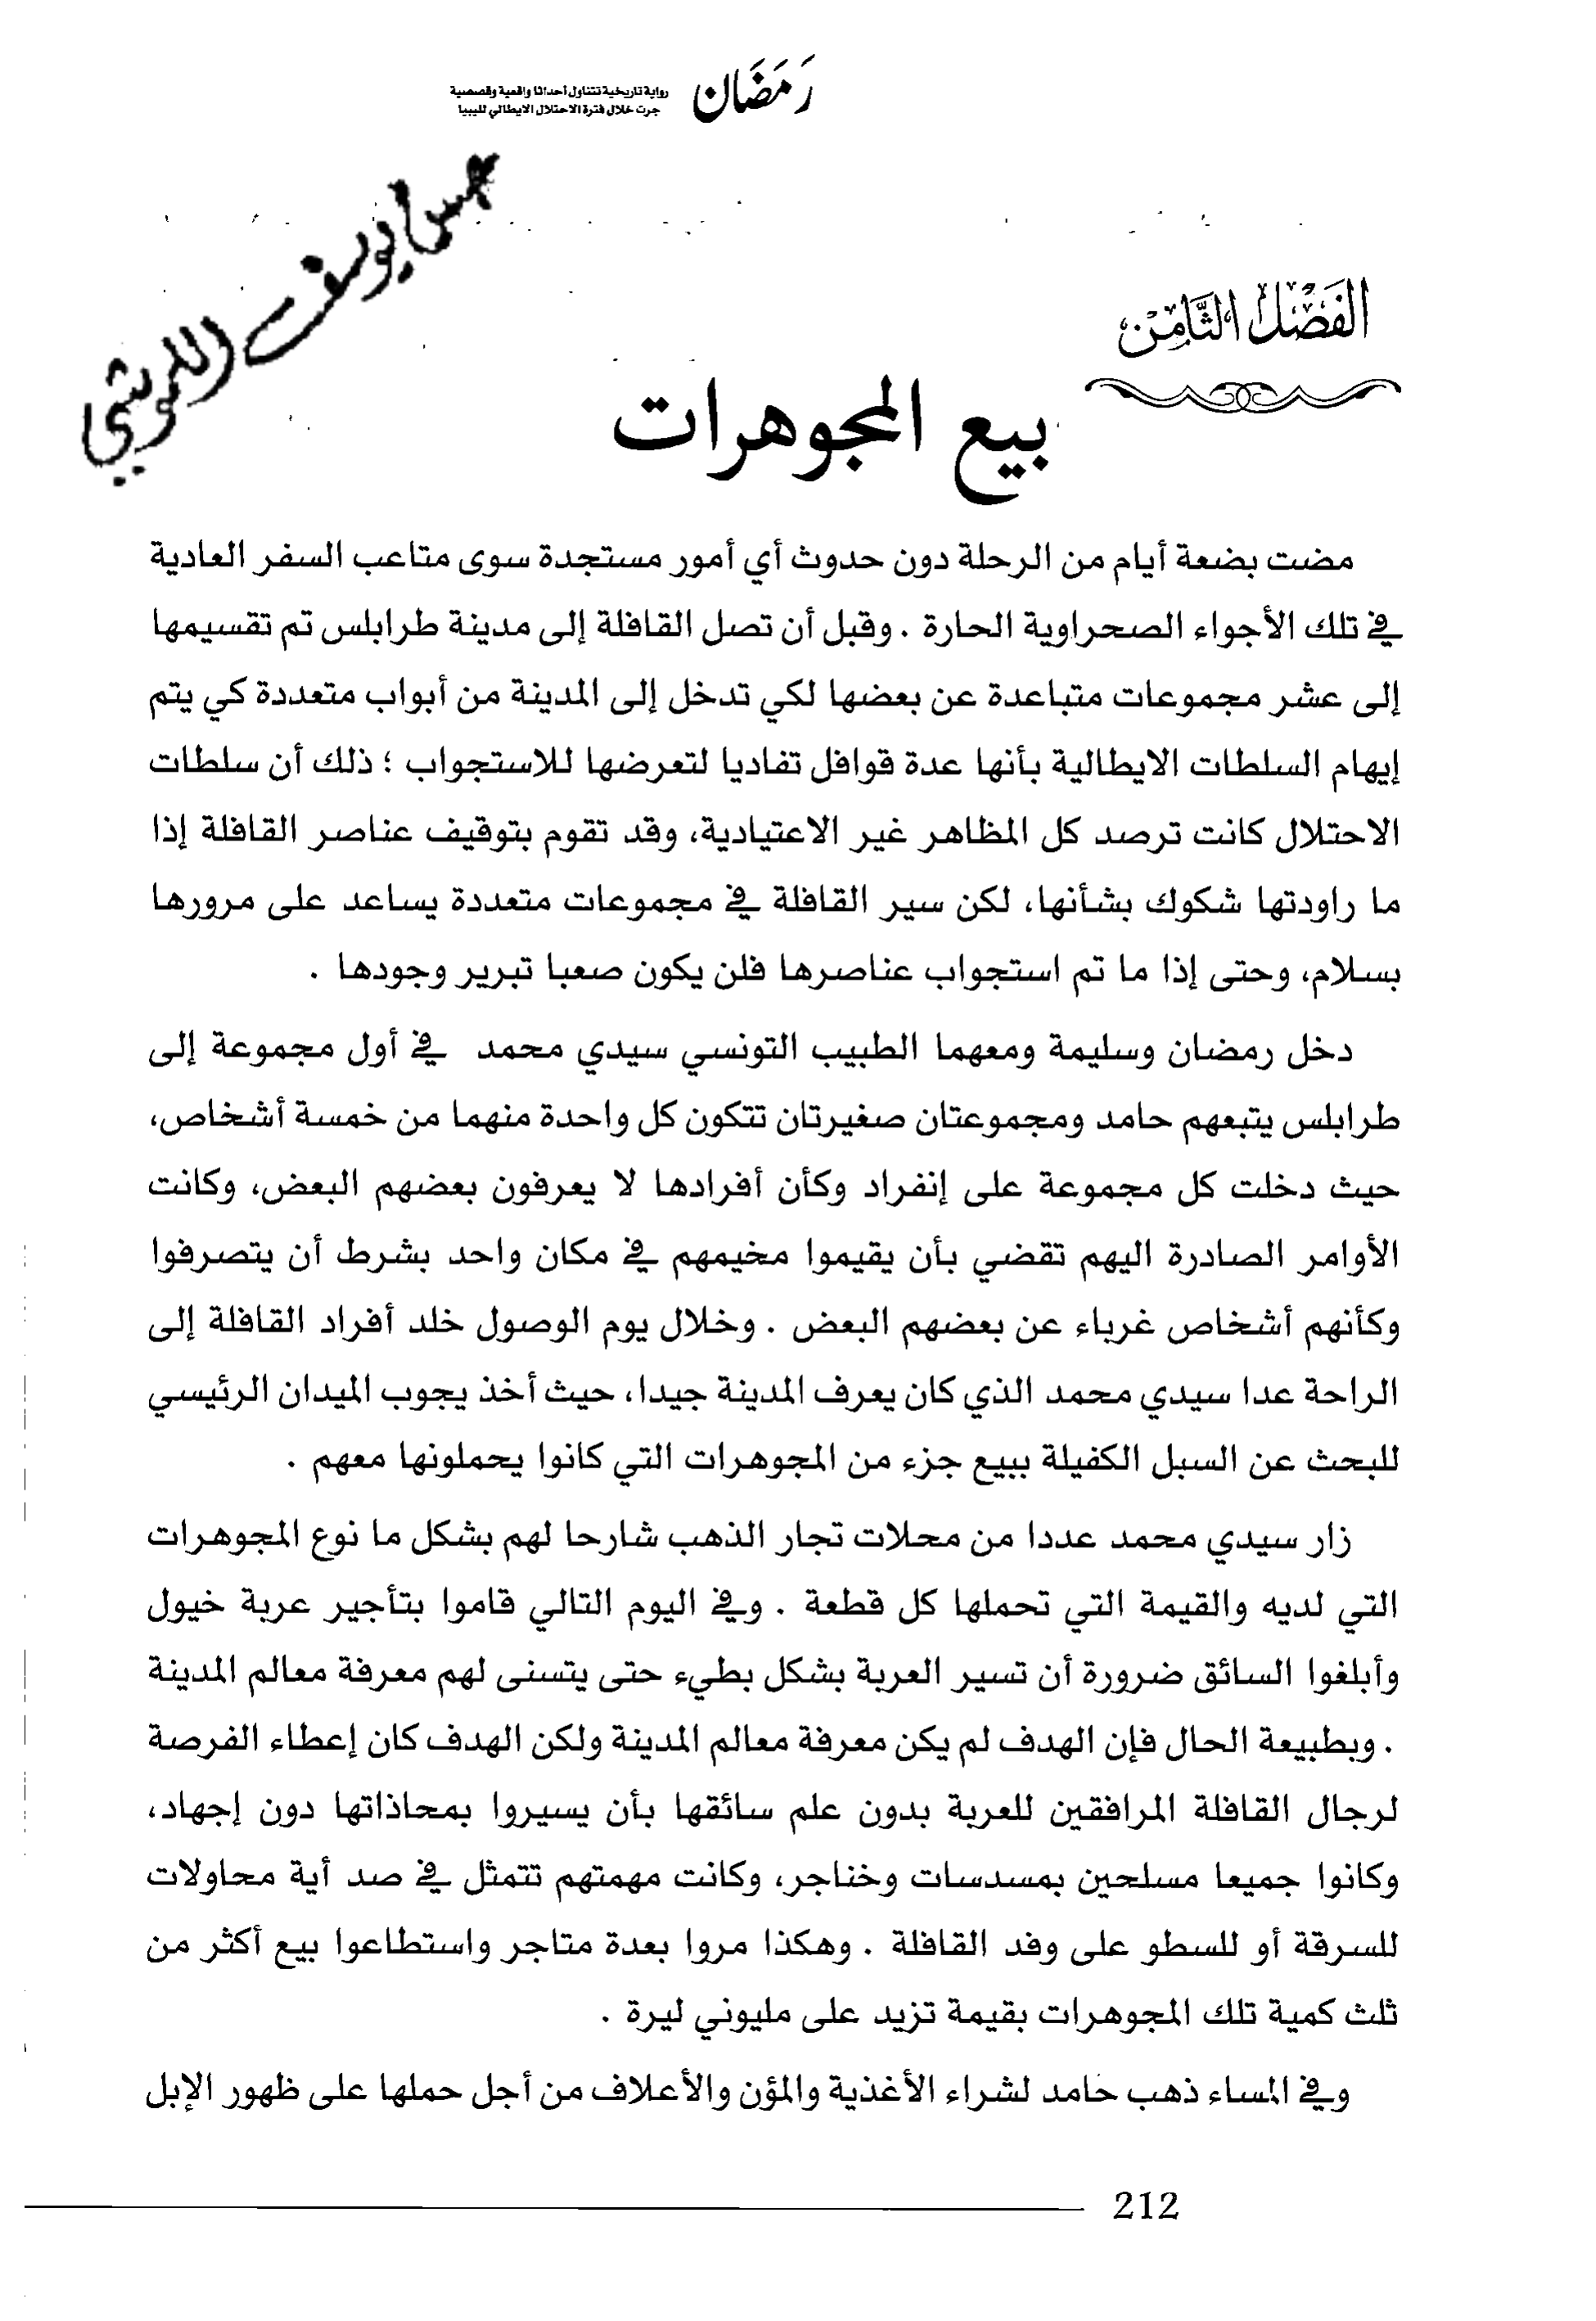 رَمَضَان
رواية تاريخية تتناول أحداثا واقعية وقصصية
جرت خلال فترة الاحتلال الايطالي لليبيا
يوسف
الفَصْل الثَّامِن
بيع المجوهرات
مضت بضعة أيام من الرحلة دون حدوث أي أمور مستجدة سوى متاعب السفر العادية
في تلك الأجواء الصحراوية الحارة . وقبل أن تصل القافلة إلى مدينة طرابلس تم تقسيمها
إلى عشر مجموعات متباعدة عن بعضها لكي تدخل إلى المدينة من أبواب متعددة كي يتم
إيهام السلطات الايطالية بأنها عدة قوافل تفاديا لتعرضها للاستجواب ؛ ذلك أن سلطات
الاحتلال كانت ترصد كل المظاهر غير الاعتيادية، وقد تقوم بتوقيف عناصر القافلة إذا
ما راودتها شكوك بشأنها، لكن سير القافلة في مجموعات متعددة يساعد على مرورها
بسلام، وحتى إذا ما تم استجواب عناصرها فلن يكون صعبا تبرير وجودها .
دخل رمضان وسليمة ومعهما الطبيب التونسي سيدي محمد في أول مجموعة إلى
طرابلس يتبعهم حامد ومجموعتان صغيرتان تتكون كل واحدة منهما من خمسة أشخاص،
حيث دخلت كل مجموعة على إنفراد وكأن أفرادها لا يعرفون بعضهم البعض، وكانت
الأوامر الصادرة اليهم تقضي بأن يقيموا مخيمهم في مكان واحد بشرط أن يتصرفوا
وكأنهم أشخاص غرباء عن بعضهم البعض . وخلال يوم الوصول خلد أفراد القافلة إلى
الراحة عدا سيدي محمد الذي كان يعرف المدينة جيدا، حيث أخذ يجوب الميدان الرئيسي
للبحث عن السبل الكفيلة ببيع جزء من المجوهرات التي كانوا يحملونها معهم .
زار سيدي محمد عددا من محلات تجار الذهب شارحا لهم بشكل ما نوع المجوهرات
التي لديه والقيمة التي تحملها كل قطعة . وفي اليوم التالي قاموا بتأجير عربة خيول
وأبلغوا السائق ضرورة أن تسير العربة بشكل بطيء حتى يتسنى لهم معرفة معالم المدينة
. وبطبيعة الحال فإن الهدف لم يكن معرفة معالم المدينة ولكن الهدف كان إعطاء الفرصة
لرجال القافلة المرافقين للعربة بدون علم سائقها بأن يسيروا بمحاذاتها دون إجهاد،
وكانوا جميعا مسلحين بمسدسات وخناجر، وكانت مهمتهم تتمثل في صد أية محاولات
للسرقة أو للسطو على وفد القافلة . وهكذا مروا بعدة متاجر واستطاعوا بيع أكثر من
ثلث كمية تلك المجوهرات بقيمة تزيد على مليوني ليرة .
وفي المساء ذهب حامد لشراء الأغذية والمؤن والأعلاف من أجل حملها على ظهور الإبل
212